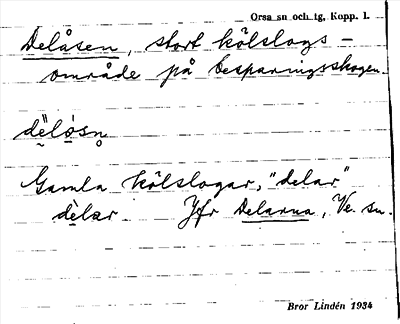 Orsa sn och tg, Kopp. l.
Delåsen, stort kölslogs-
område på besparingsskogen.
dèlo̊sn̥
Gamla kölslogar, "delar"
dèlar Jfr Delarna, Ve. sn.
Bror Lindén 1934